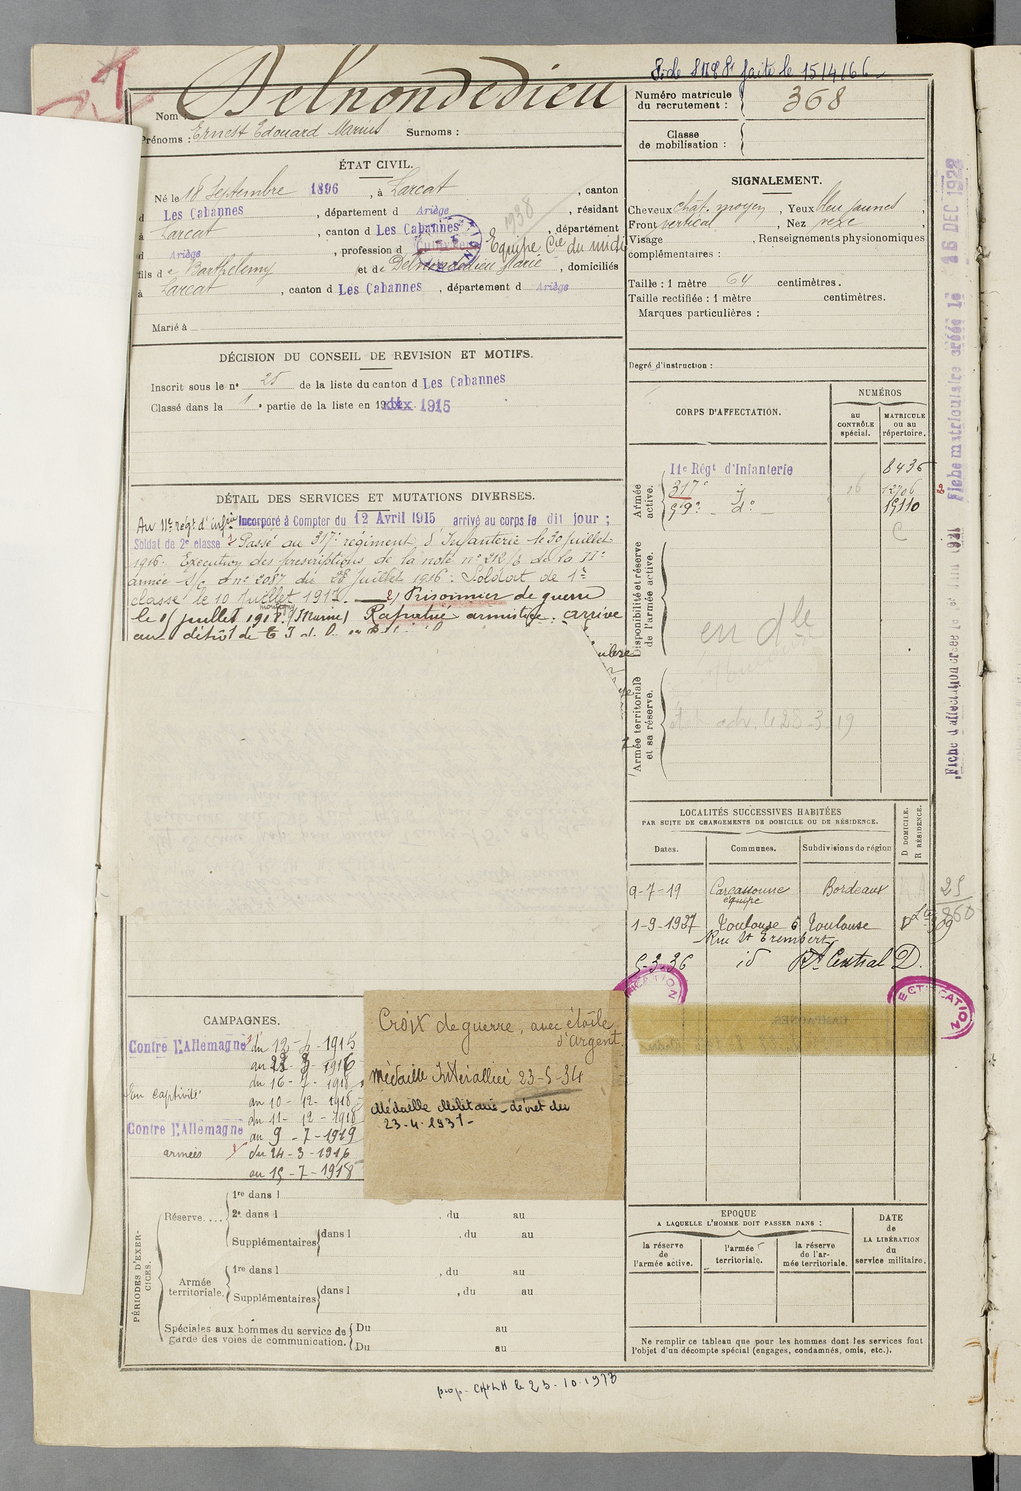 faite le 15/4/66
Nom : Delnondedieu
Prénoms : Ernest Edouard Marius Surnoms :
Numéro matricule du recrutement : 368
Classe de mobilisation :
ÉTAT CIVIL.
Né le 18 Septembre 1896, à Larcat, canton
d Les Cabannes, département d Ariège, résidant
à Larcat, canton d Les Cabannes, département
d Ariège, profession d Equipe Cie du midi
fils de Barthélemy et de Delnondedieu Marie, domiciliés
à Larcat, canton d Les Cabannes, département d Ariège
Marié à
1938
SIGNALEMENT.
Cheveux chât. moyen, Yeux bleu jaunes
Front vertical, Nez
Visage, Renseignements physionomiques
complémentaires :
Taille : 1 mètre 64 centimètres.
Taille rectifiée : 1 mètre centimètres.
Marques particulières :
Degré d'instruction :
DÉCISION DU CONSEIL DE REVISION ET MOTIFS.
Inscrit sous le n° 25 de la liste du canton d Les Cabannes
Classé dans la 1e partie de la liste en 1915
CORPS D'AFFECTATION.
NUMÉROS
au CONTRÔLE spécial.
MATRICULE ou au répertoire.
Armée active.
11e Régt d'Infanterie 8436
317e d° 12706
59e d° 15110
Disponibilité et réserve de l'armée active.
en dle
Armée territoriale et sa réserve.
adr. le 28-3-19
DÉTAIL DES SERVICES ET MUTATIONS DIVERSES.
Au 11e régt d'infie Incorporé à Compter du 12 Avril 1915 arrivé au corps le dit jour ;
Soldat de 2e classe Passé au 317e régiment d'Infanterie le 30 juillet
1916. Exécution des prescriptions de la note n° 212/2 de la IIe
année S/C d n° 2087 du 28 Juillet 1916. Soldat de 1e
classe le 10 Juillet 1917. Prisonnier de guerre
le 15 juillet 1918 (Marne) Rapatrié armistice. arrivé
au dépôt de
LOCALITÉS SUCCESSIVES HABITÉES
PAR SUITE DE CHANGEMENTS DE DOMICILE OU DE RÉSIDENCE.
Dates. Communes. Subdivisions de région
D DOMICILE. R RÉSIDENCE.
9-7-19 Carcassonne équipe Bordeaux
1-9-1927 Toulouse 6 Rue St Erembert Toulouse
5-3-36 id Rt Central D.
25
860
CAMPAGNES.
Contre l'Allemagne du 12-4-1915
au
du 16-7-1918
En captivité
au 10-12-1918
du 11-12-1918
Contre l'Allemagne au 9-7-1919
armées du 24-3-1916
au 15-7-1918
Croix de guerre, avec étoile
d'argent
Médaille Interalliée 23-5-34
Médaille Militaire - décret du
23-4-1931-
RECTIFICATION
PÉRIODES D'EXERCICES.
Réserve....
1re dans l
2e dans l , du au
Supplémentaires dans l , du au
Armée territoriale.
1re dans l , du au
Supplémentaires dans l , du au
Spéciales aux hommes du service de garde des voies de communication.
Du au
Du au
EPOQUE
A LAQUELLE L'HOMME DOIT PASSER DANS :
la réserve de l'armée active.
l'armée territoriale.
la réserve de l'armée territoriale.
DATE de LA LIBÉRATION du service militaire.
Ne remplir ce tableau que pour les hommes dont les services font
l'objet d'un décompte spécial (engagés, condamnés, omis, etc.).
le 25.10.1973
Fiche matriculaire créée le 16 DEC 1928
Fiche d'affectation créée le